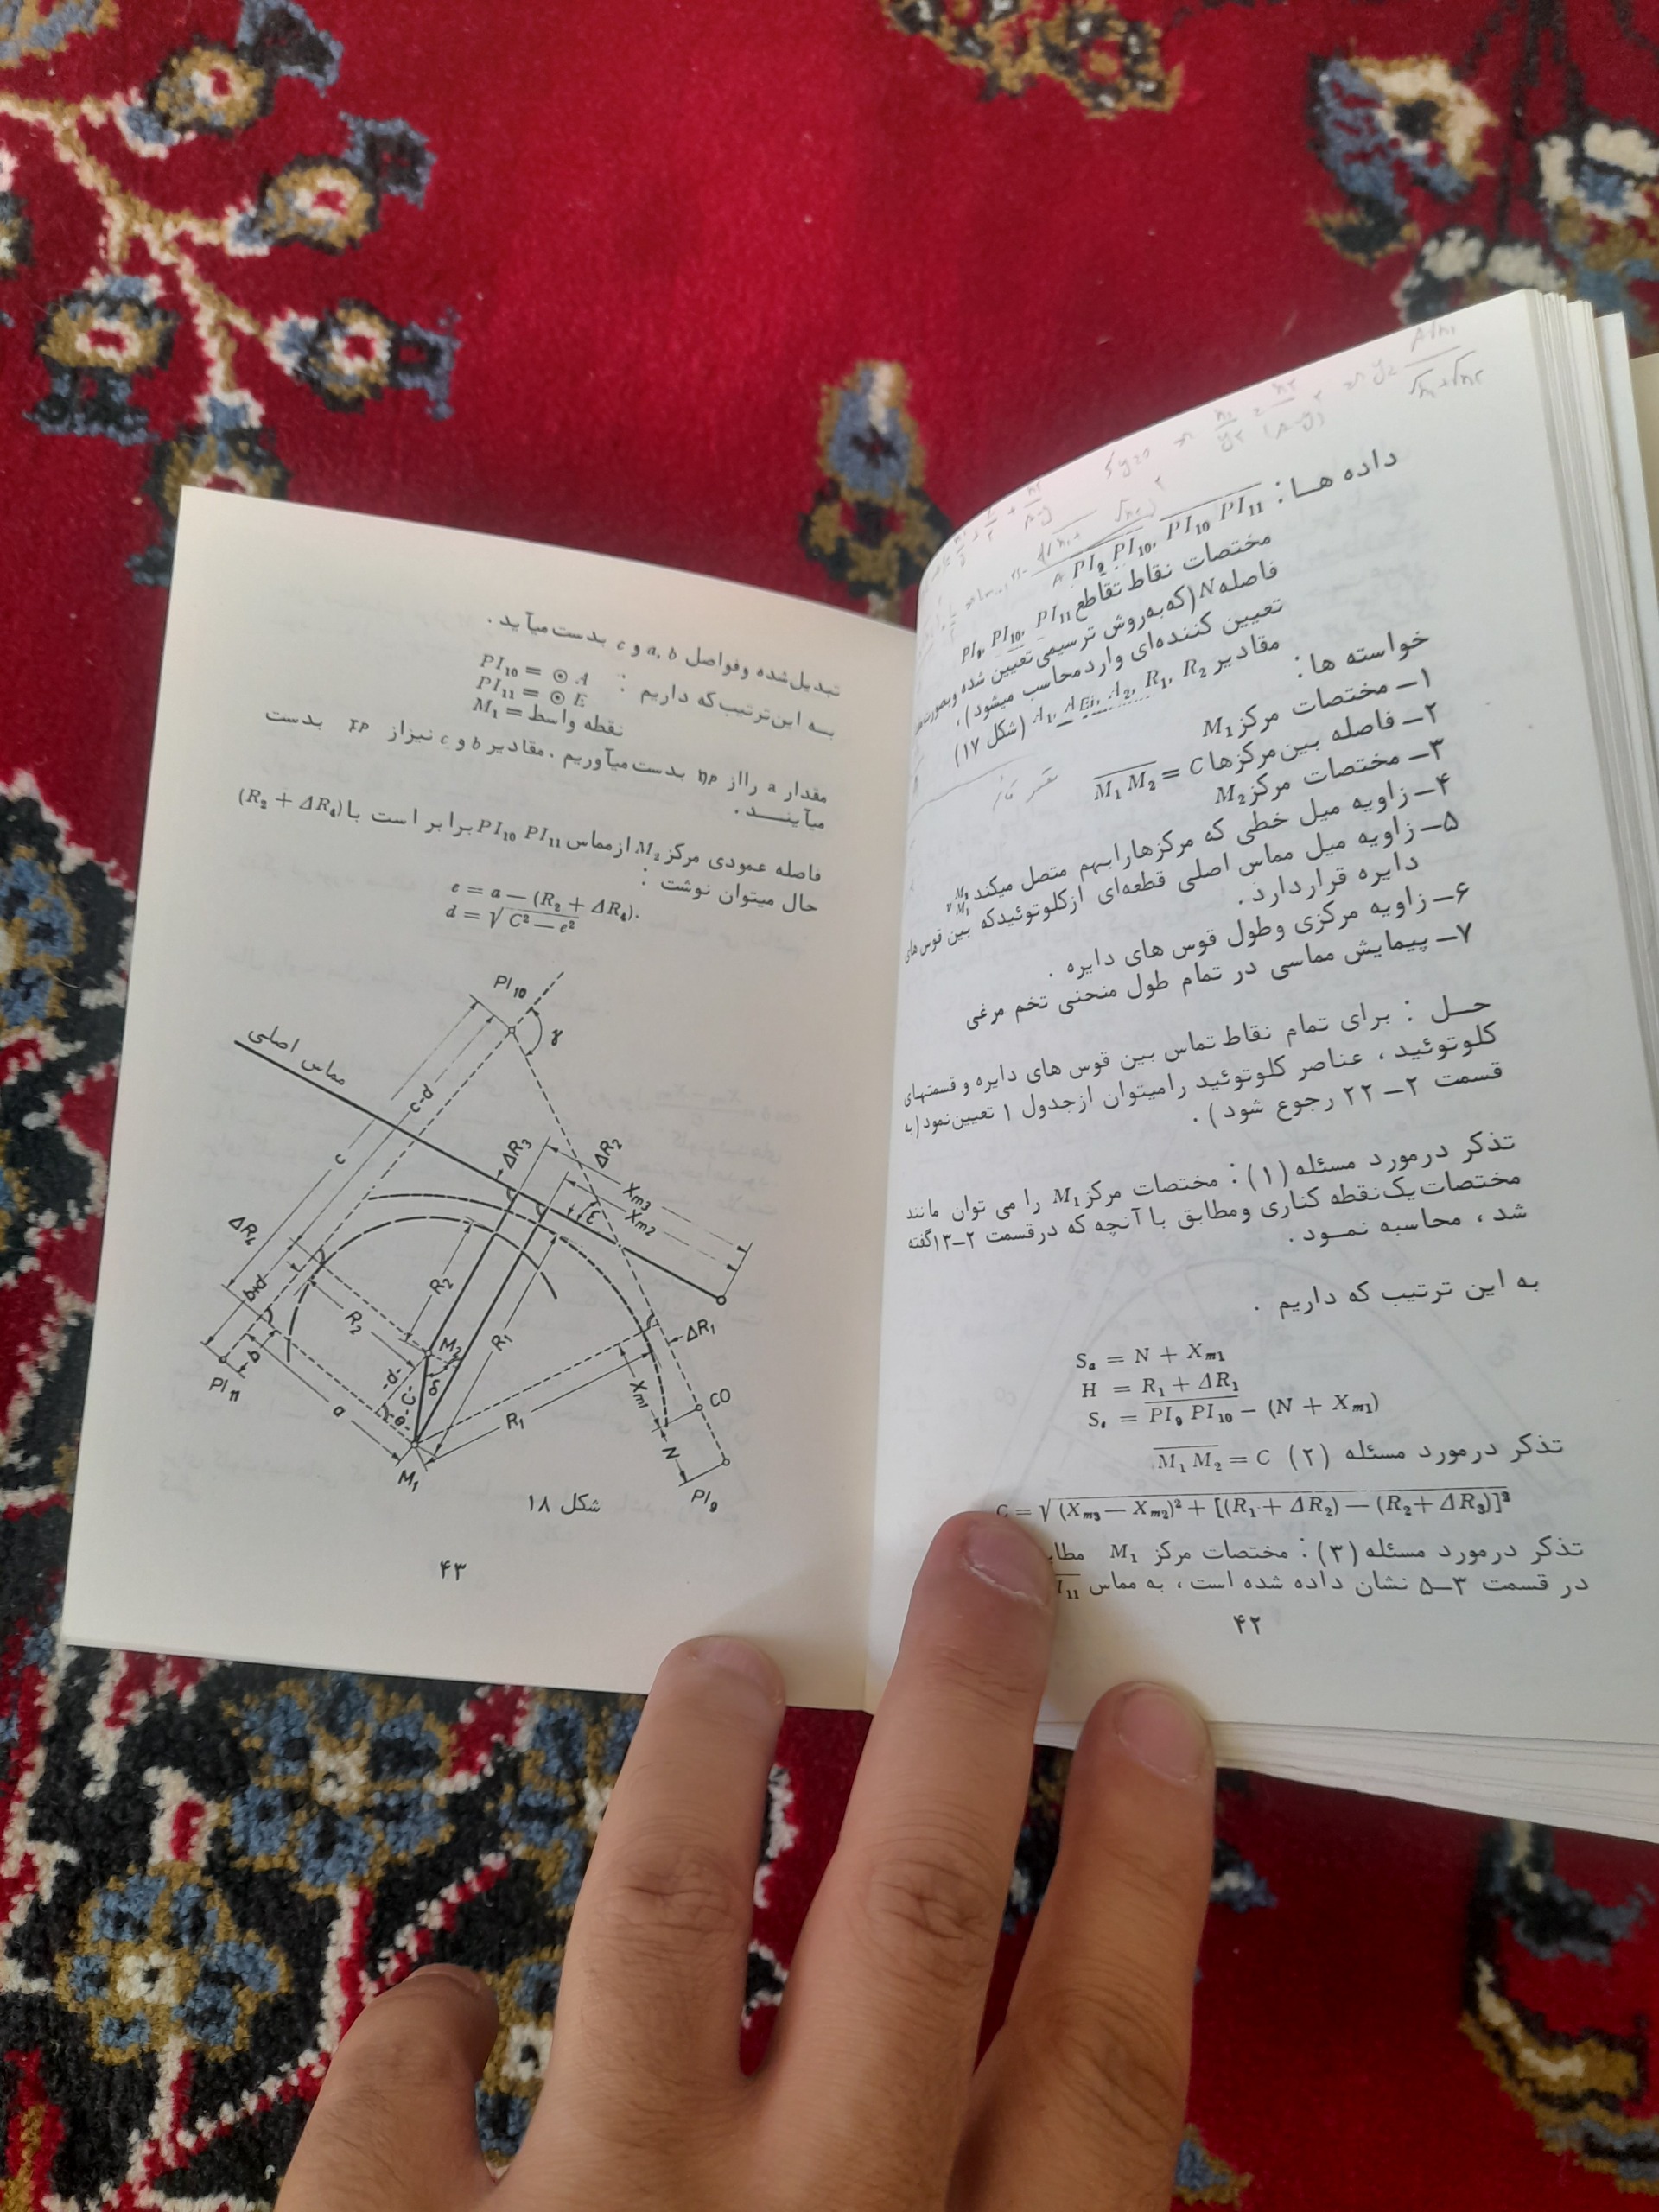 داده هــا : PI₉ PI₁₀, PI₁₀ PI₁₁
مختصات نقاط تقاطع PI₉, PI₁₀, PI₁₁
فاصله N (که به روش ترسیمی تعیین شده و بصورت
تعیین کننده‌ای وارد محاسب میشود) .
مقادیر A₁, A_Ei, A₂, R₁, R₂ (شکل ۱۷)
خواسته ها :
۱ـ مختصات مرکز M₁
۲ـ فاصله بین مرکزها M₁ M₂ = C
۳ـ مختصات مرکز M₂
۴ـ زاویه میل خطی که مرکزها را بهم متصل میکند
۵ـ زاویه میل مماس اصلی قطعه‌ای از کلوتوئید که بین قوس های
دایره قرار دارد .
۶ـ زاویه مرکزی و طول قوس های دایره .
۷ـ پیمایش مماسی در تمام طول منحنی تخم مرغی
حــل : برای تمام نقاط تماس بین قوس های دایره و قسمتهای
کلوتوئید ، عناصر کلوتوئید را میتوان از جدول ۱ تعیین نمود (به
قسمت ۲ــ۲۲ رجوع شود) .
تذکر در مورد مسئله (۱) : مختصات مرکز M₁ را می توان مانند
مختصات یک نقطه کناری و مطابق با آنچه که در قسمت ۲ــ۱۳ گفته
شد ، محاسبه نمــود .
به این ترتیب که داریم .
Sₐ = N + Xₘ₁
H = R₁ + ΔR₁
Sₑ = PI₉ PI₁₀ − (N + Xₘ₁)
تذکر در مورد مسئله (۲) M₁ M₂ = C
C = √(Xₘ₃ − Xₘ₂)² + [(R₁ + ΔR₂) − (R₂ + ΔR₃)]²
تذکر در مورد مسئله (۳) : مختصات مرکز M₁
در قسمت ۳ــ۵ نشان داده شده است ، به مماس
۴۲
تبدیل شده و فواصل a, b و c بدست میآید .
به این ترتیب که داریم : PI₁₀ = ⊙ A
PI₁₁ = ⊙ E
نقطه واسط = M₁
مقدار a را از بدست میآوریم . مقادیر b و c نیز از بدست
میآینــــد .
فاصله عمودی مرکز M₂ از مماس PI₁₀ PI₁₁ برابر است با (R₂ + ΔR₄)
حال میتوان نوشت :
e = a − (R₂ + ΔR₄).
d = √C² − e²
PI₁₀
γ
مماس اصلی
c-d
c
ΔR₃
ΔR₂
Xₘ₃
Xₘ₂
ε
ΔR₄
b+d
R₂
R₂
R₁
ΔR₁
M₂
b
PI₁₁
-d-
-C-
δ
θ
a
R₁
Xₘ₁
CO
N
M₁
PI₉
شکل ۱۸
۴۳